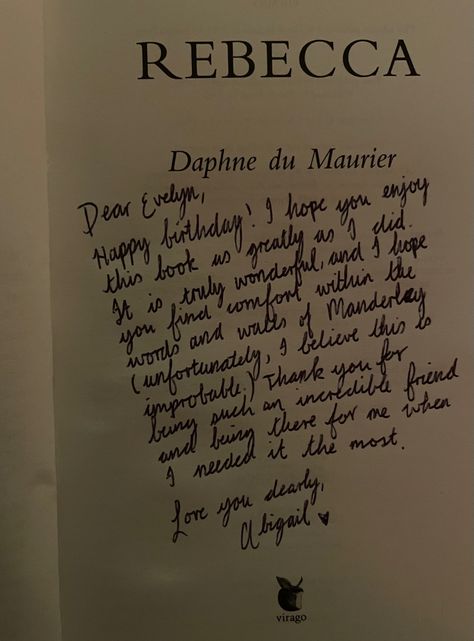 REBECCA
Daphne du Maurier
Dear Evelyn,
Happy birthday! I hope you enjoy
this book as greatly as I did.
It is truly wonderful, and I hope
you find comfort within the
words and walls of Manderley
(unfortunately, I believe this is
improbable.) Thank you for
being such an incredible friend
and being there for me when
I needed it the most.
Love you dearly,
Abigail ♥
virago